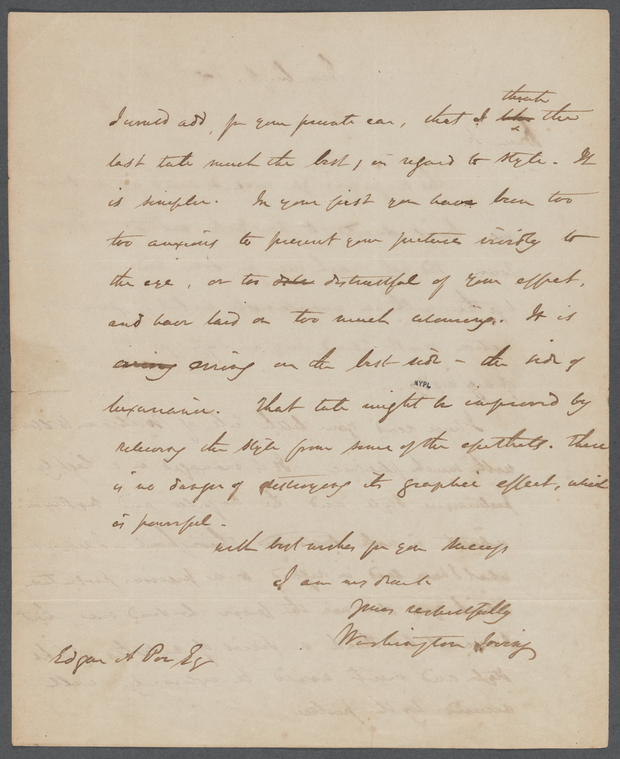 think
I would add, for your private ear, that I the
last tale much the best, in regard to style. It
is simpler. In your first you have been too
too anxious to present your picture vividly to
the eye, or too distrustful of your effect,
and have laid on too much colouring. It is
erring erring on the best side – the side of
luxuriance. That tale might be improved by
relieving the style from some of the epithets. There
is no danger of destroying its graphic effect, which
is powerful.
With best wishes for your success
I am my dear Sir
Yours respectfully
Washington Irving
Edgar A Poe Esq
NYPL